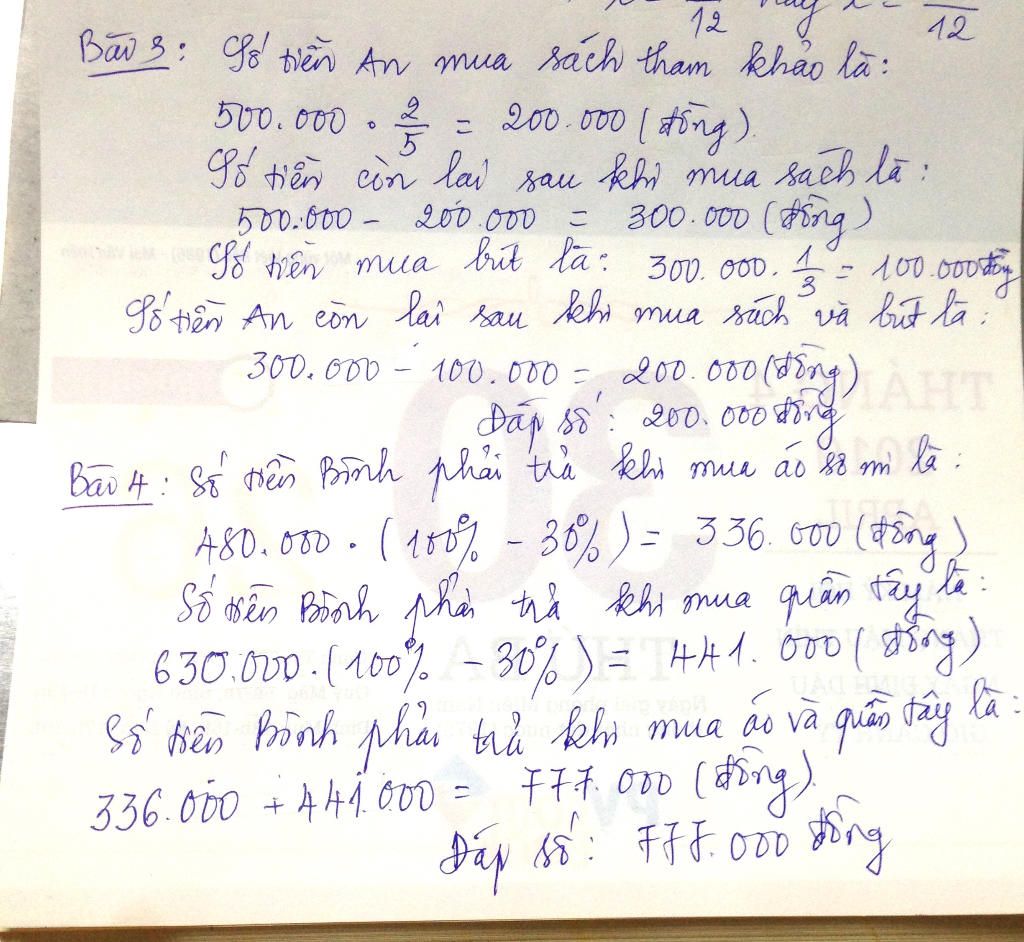 12 hay x = 12
Bài 3: Số tiền An mua sách tham khảo là:
500.000 . 2/5 = 200.000 (đồng).
Số tiền còn lại sau khi mua sách là:
500.000 - 200.000 = 300.000 (đồng)
Số tiền mua bút là: 300.000 . 1/3 = 100.000 đồng
Số tiền An còn lại sau khi mua sách và bút là:
300.000 - 100.000 = 200.000 (đồng)
Đáp số: 200.000 đồng
Bài 4: Số tiền Bình phải trả khi mua áo sơ mi là:
480.000 . (100% - 30%) = 336.000 (đồng)
Số tiền Bình phải trả khi mua quần tây là:
630.000 . (100% - 30%) = 441.000 (đồng)
Số tiền Bình phải trả khi mua áo và quần tây là:
336.000 + 441.000 = 777.000 (đồng).
Đáp số: 777.000 đồng